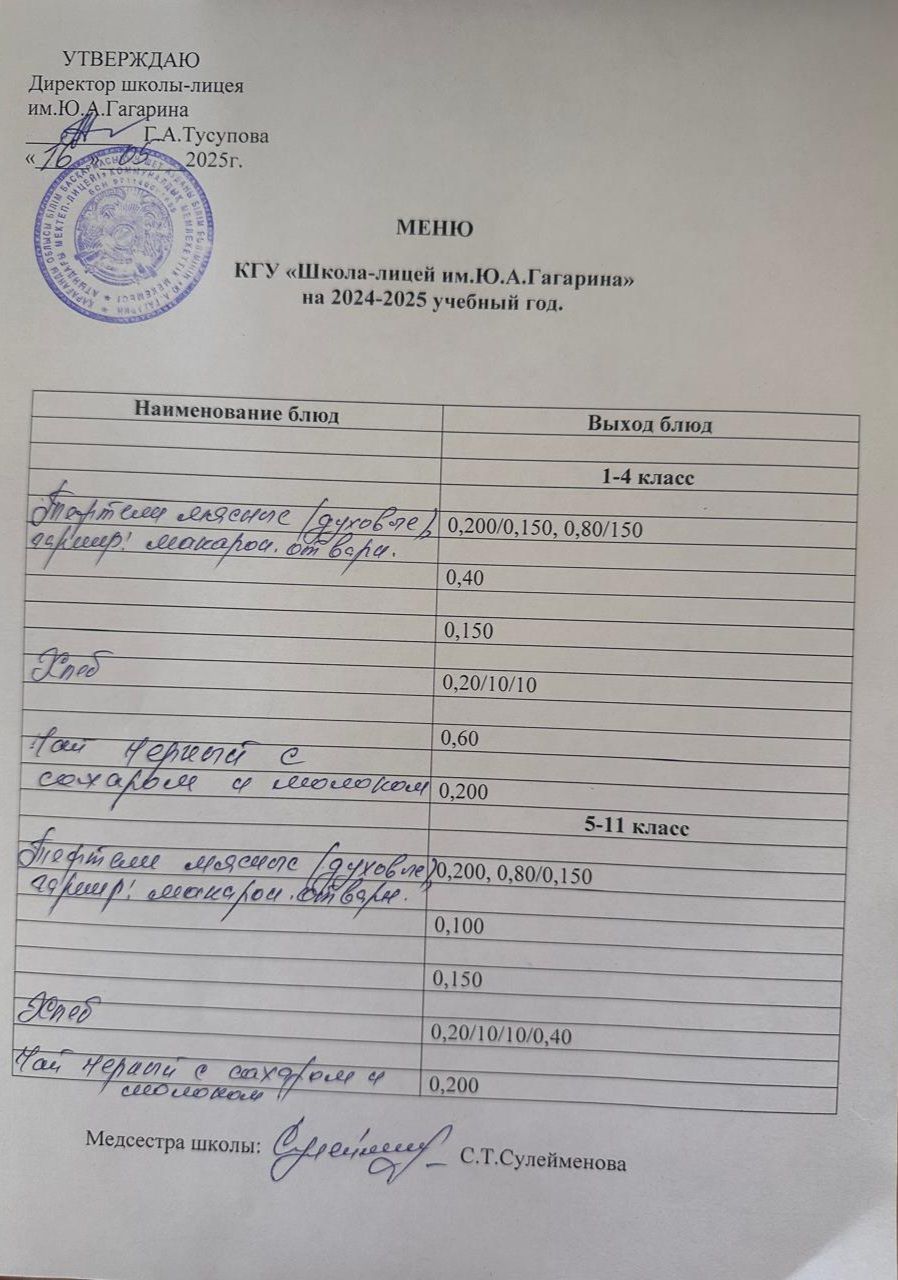 УТВЕРЖДАЮ
Директор школы-лицея
им.Ю.А.Гагарина
Г.А.Тусупова
« 16 » 05 2025г.
МЕНЮ
КГУ «Школа-лицей им.Ю.А.Гагарина»
на 2024-2025 учебный год.
Наименование блюд Выход блюд
1-4 класс
Тефтели мясные (духовые), 0,200/0,150, 0,80/150
гарнир: макарон. отварн.
0,40
0,150
Хлеб
0,20/10/10
0,60
Чай черный с
сахаром и молоком 0,200
5-11 класс
Тефтели мясные (духовые) 0,200, 0,80/0,150
гарнир: макарон. отварн.
0,100
0,150
Хлеб
0,20/10/10/0,40
Чай черный с сахаром и 0,200
молоком
Медсестра школы: С.Т.Сулейменова